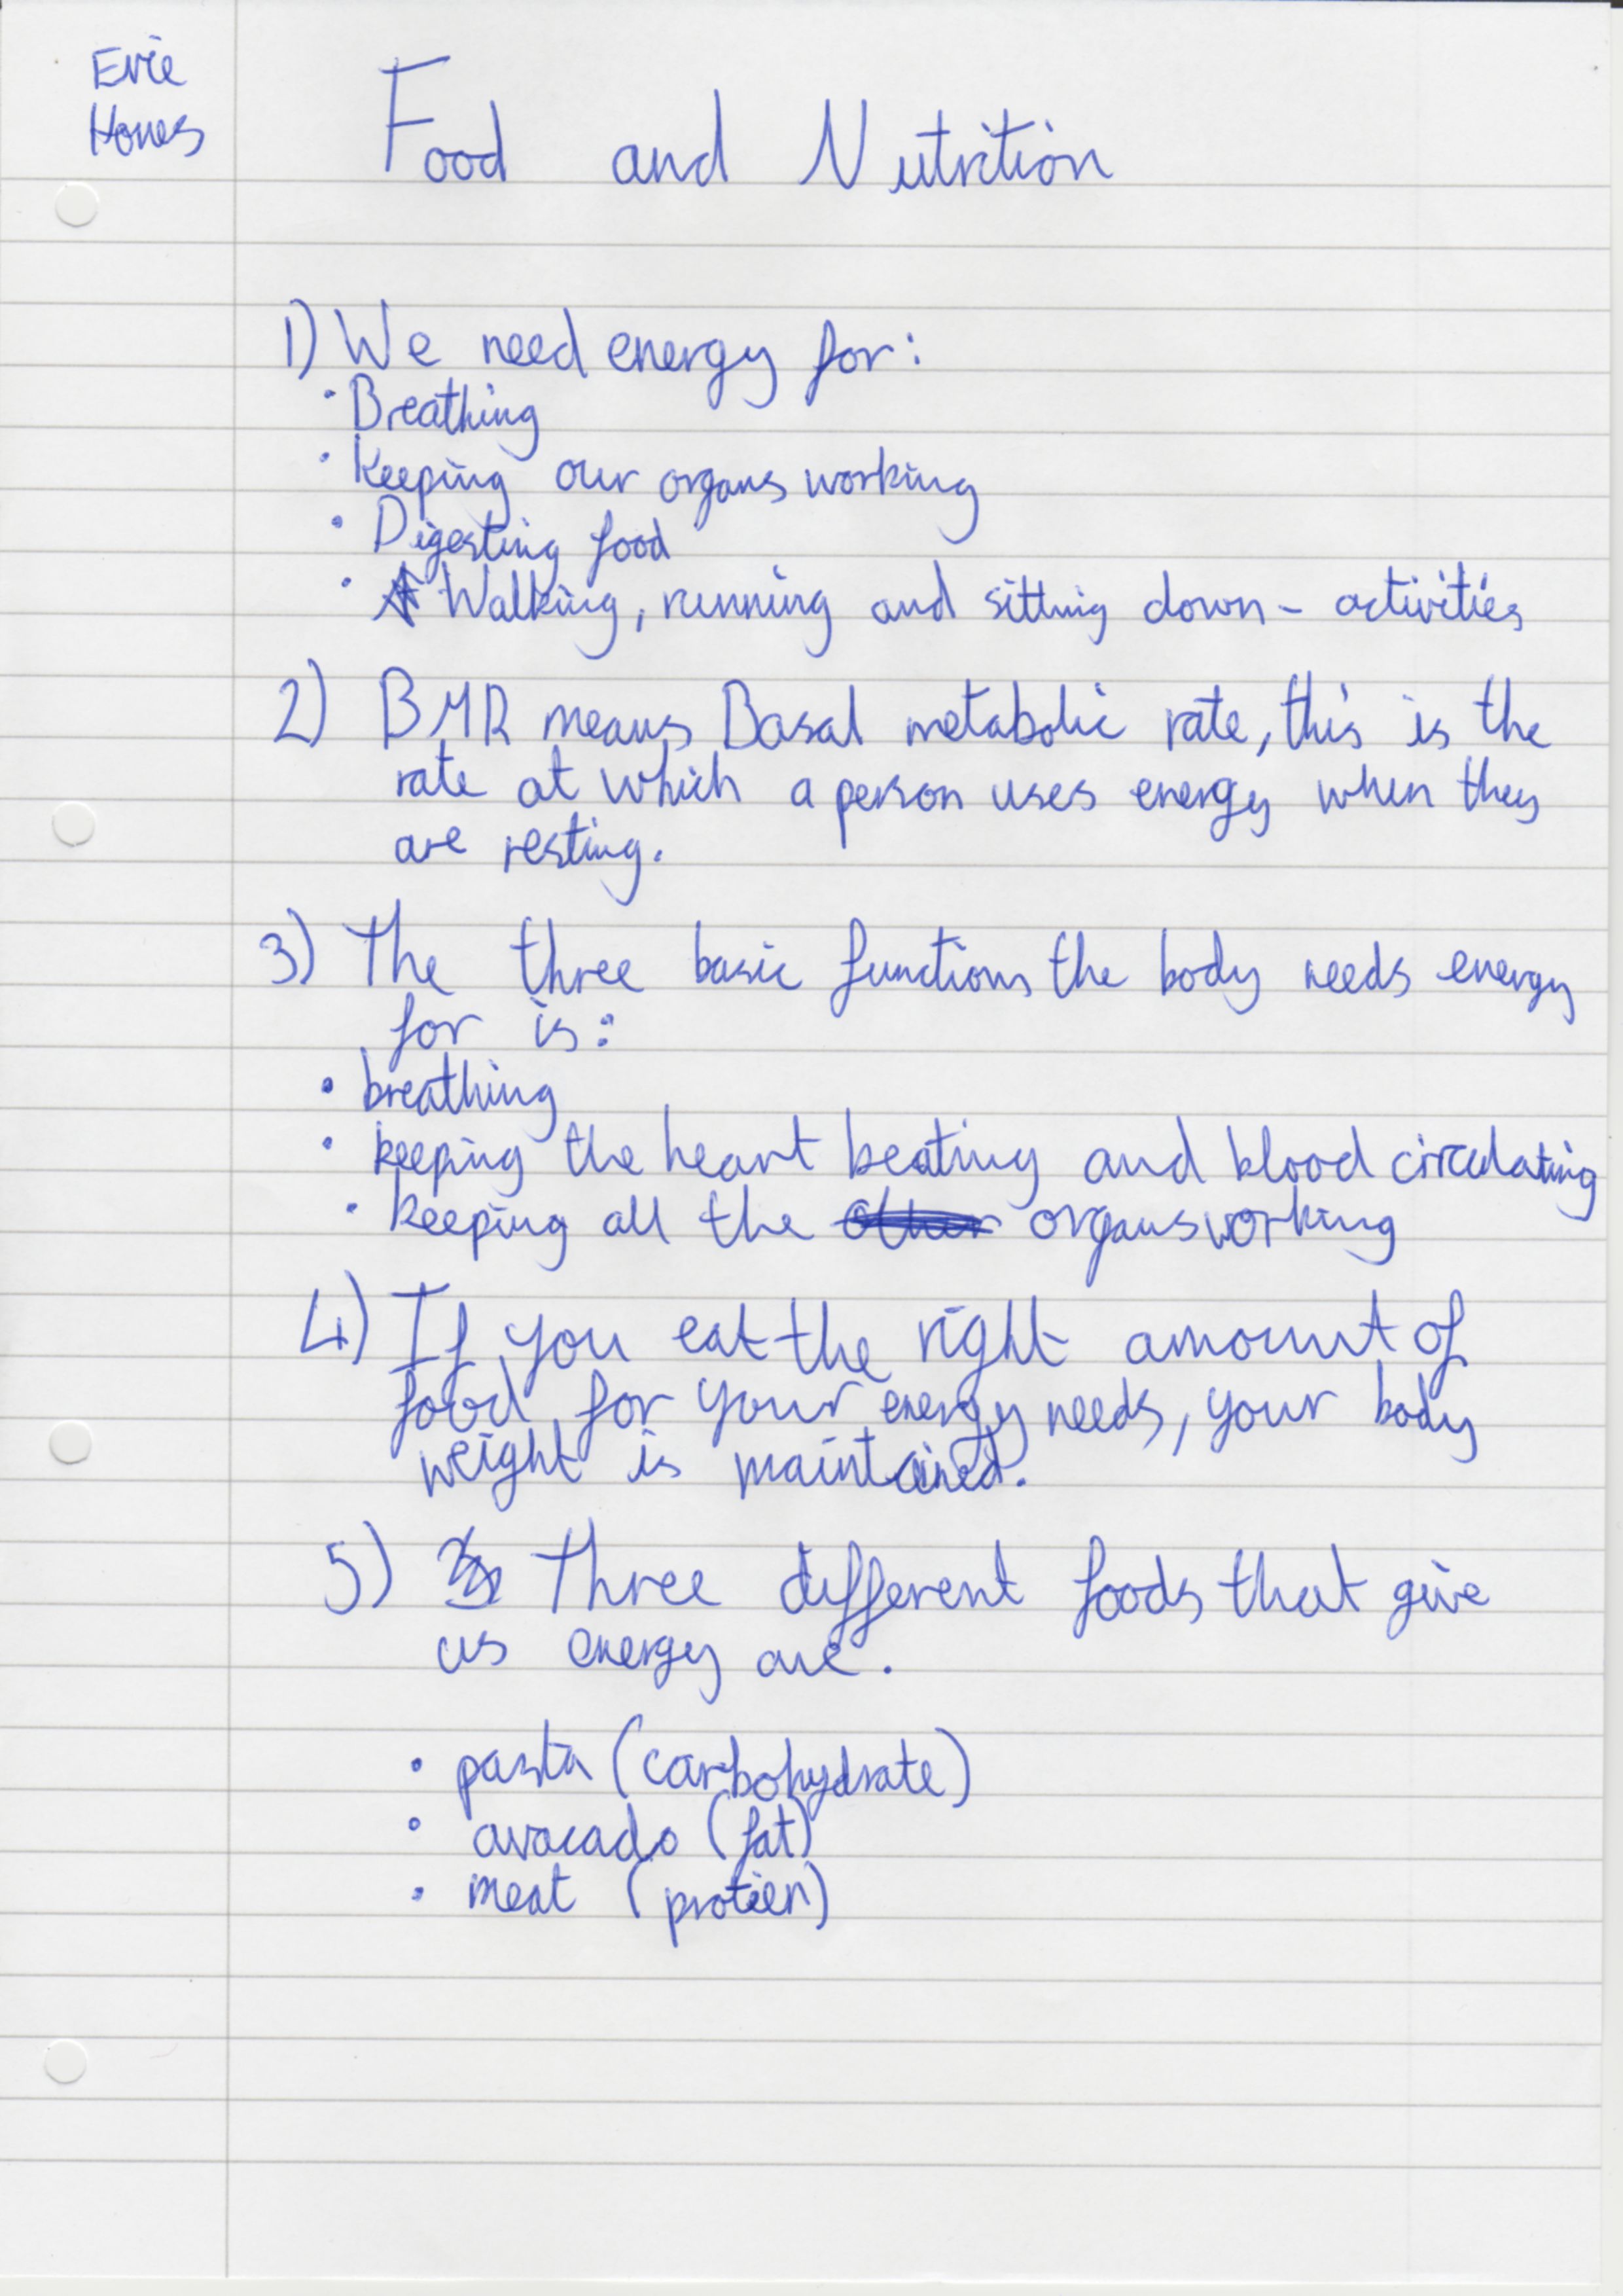 Evie
Hones
Food and Nutrition
1) We need energy for:
• Breathing
• Keeping our organs working
• Digesting food
• Walking, running and sitting down - activities
2) BMR means Basal metabolic rate, this is the
rate at which a person uses energy when they
are resting.
3) The three basic functions the body needs energy
for is:
• breathing
• keeping the heart beating and blood circulating
• keeping all the organs working
4) If you eat the right amount of
food for your energy needs, your body
weight is maintained.
5) Three different foods that give
us energy are.
• pasta (carbohydrate)
• avocado (fat)
• meat (protien)